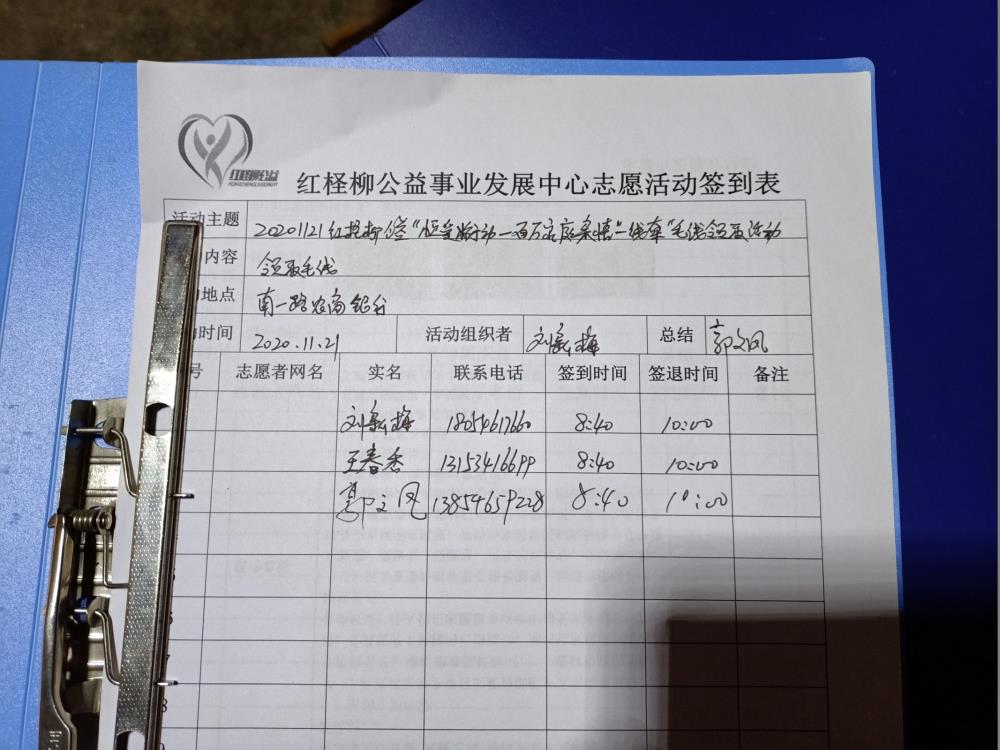 红柽柳公益
HONGCHENGLIUGONGYI
红柽柳公益事业发展中心志愿活动签到表
活动主题 20201121红柽柳公益“恒爱行动—百万家庭亲情一线牵”毛线领取活动
内容 领取毛线
地点 南一路农商银行
时间 2020.11.21 活动组织者 刘新梅 总结 郭文凤
号 志愿者网名 实名 联系电话 签到时间 签退时间 备注
刘新梅 18054617660 8:40 10:00
王春香 13153416699 8:40 10:00
郭文凤 13854659228 8:40 10:00
8